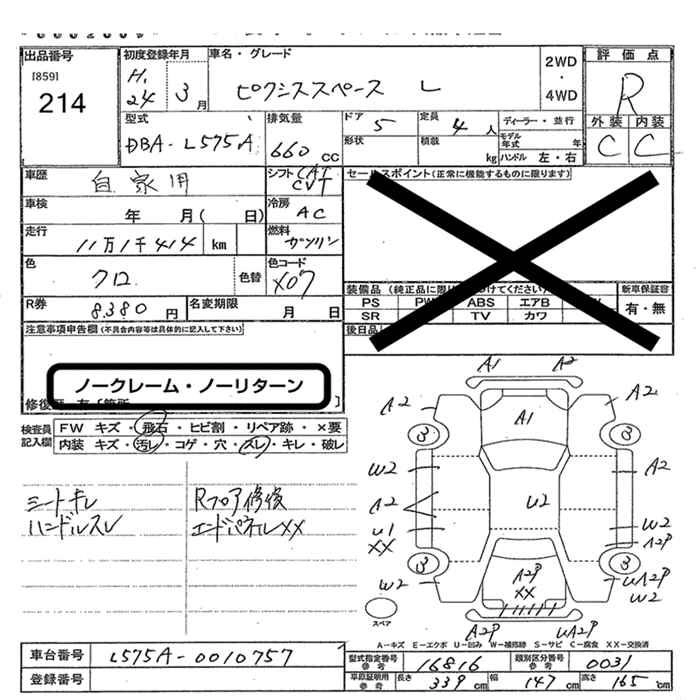 出品番号
[859]
214
初度登録年月
H.
24 3月
車名・グレード
ピクシススペース L
2WD
・
4WD
評価点
R
外装 内装
C C
型式
DBA-L575A
排気量
660 cc
ドア
5
定員
4人
ディーラー・並行
形状
積載
kg
モデル
年式 年
ハンドル 左・右
車歴
自家用
シフト CAT
CVT
セールスポイント(正常に機能するものに限ります)
車検
年 月( 日)
冷房
AC
走行
11万1千414 km
燃料
ガソリン
色
クロ
色替
色コード
X07
装備品 (純正品に限り
けてください)
新車保証書
PS PW ABS エアB
SR TV カワ
有・無
R券
8.380円
名変期限
月 日
後日品
注意事項申告欄(不具合内容等は具体的に記入して下さい)
ノークレーム・ノーリターン
検査員
記入欄
FW キズ・飛石・ヒビ割・リペア跡・×要
内装 キズ・汚レ・コゲ・穴・スレ・キレ・破レ
シートキレ
ハンドルスレ
Rフロア修復
エンドパネルXX
A1 A2
A2 A1 A2
3 3
W2 A2
A2 U2
U1 W2
XX A2P
3 3
W2 A2P UA2P
XX W2
A2P UA2P
スペア
A-キズ E-エクボ U-凹み W-補修跡 S-サビ C-腐食 XX-交換済
車台番号
L575A-0010757
登録番号
型式指定番号
参考
16816
類別区分番号
参考
0031
車原証明用
参考
長さ
339cm
幅
147cm
高さ
165cm